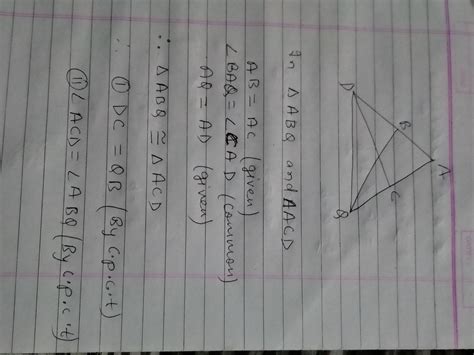 A
B
C
D
Q
In △ABQ and △ACD
AB = AC (given)
∠BAQ = ∠CAD (common)
AQ = AD (given)
∴ △ABQ ≅ △ACD
∴ ① DC = QB (By C.p.c.t)
② ∠ACD = ∠ABQ (By C.p.c.t)